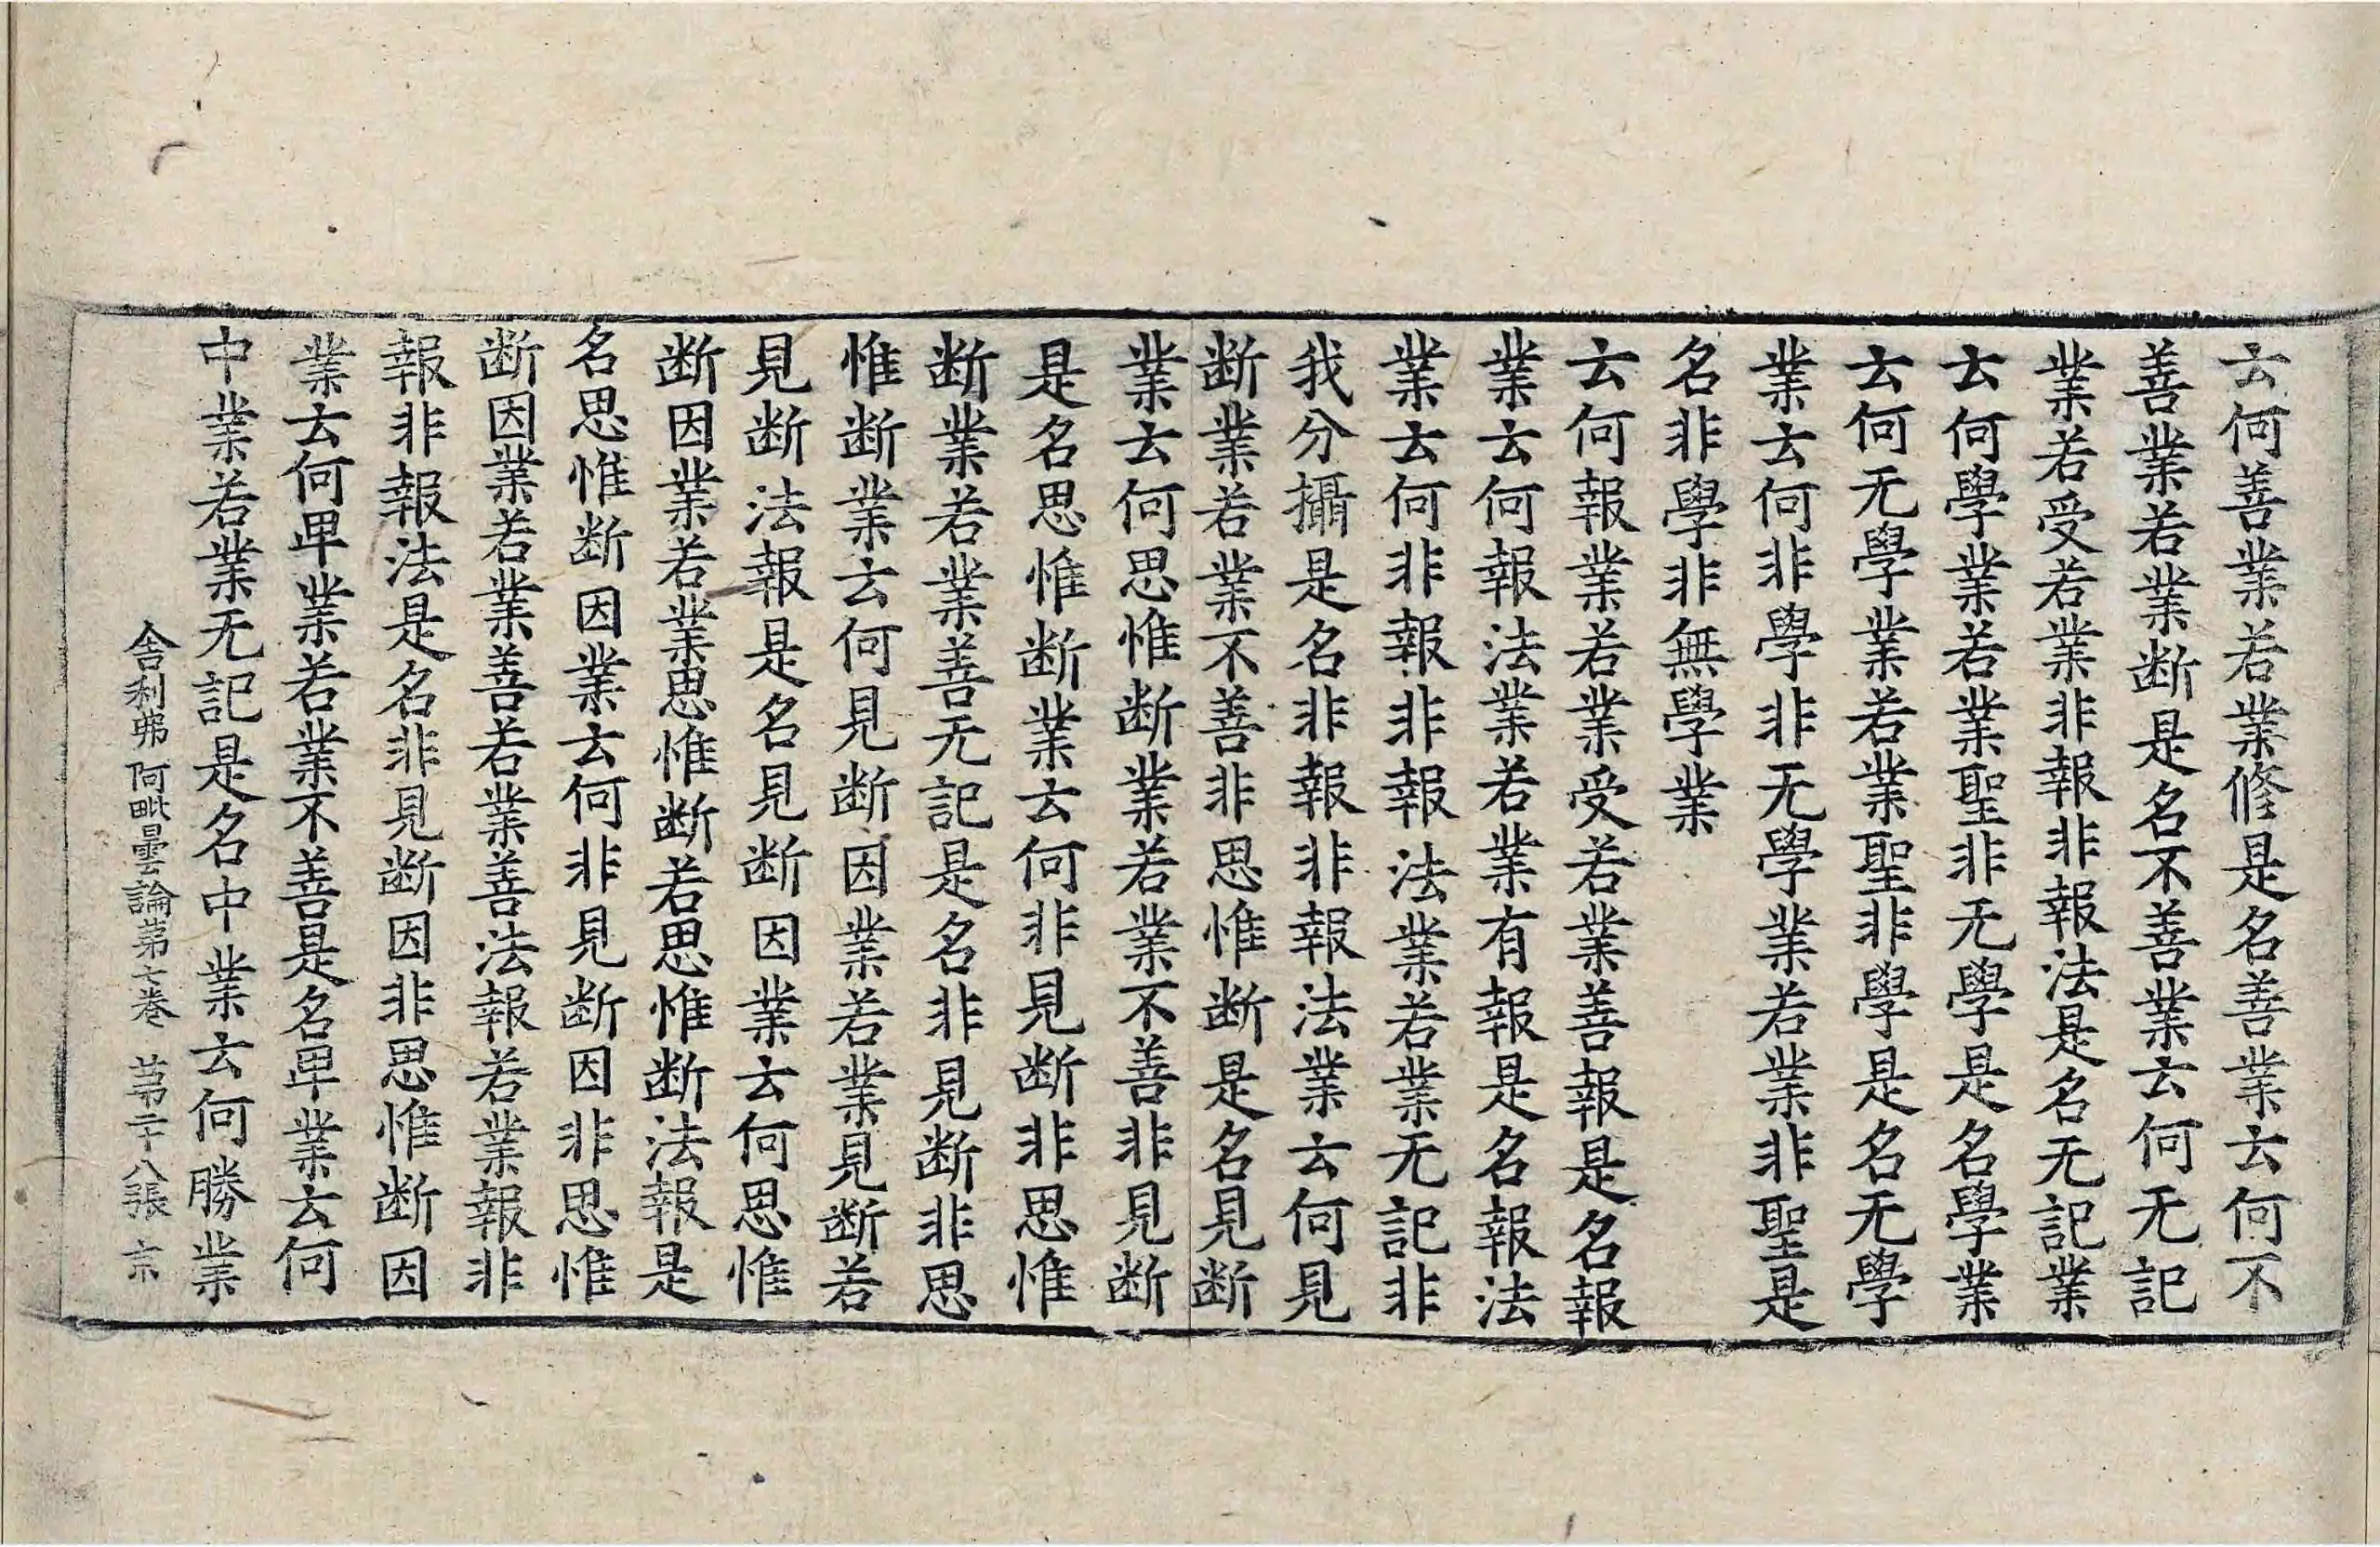 云何善業若業修是名善業云何不
善業若業断是名不善業云何无記
業若受若業非報非報法是名无記業
云何學業若業聖非无學是名學業
云何无學業若業聖非學是名无學
業云何非學非无學業若業非聖是
名非學非無學業
云何報業若業受若業善報是名報
業云何報法業若業有報是名報法
業云何非報非報法業若業无記非
我分攝是名非報非報法業云何見
断業若業不善非思惟断是名見断
業云何思惟断業若業不善非見断
是名思惟断業云何非見断非思惟
断業若業善无記是名非見断非思
惟断業云何見断因業若業見断若
見断法報是名見断因業云何思惟
断因業若業思惟断若思惟断法報是
名思惟断因業云何非見断因非思惟
断因業若業善若業善法報若業報非
報非報法是名非見断因非思惟断因
業云何卑業若業不善是名卑業云何
中業若業无記是名中業云何勝業
舍利弗阿毗曇論第七卷 苐二十八張 京